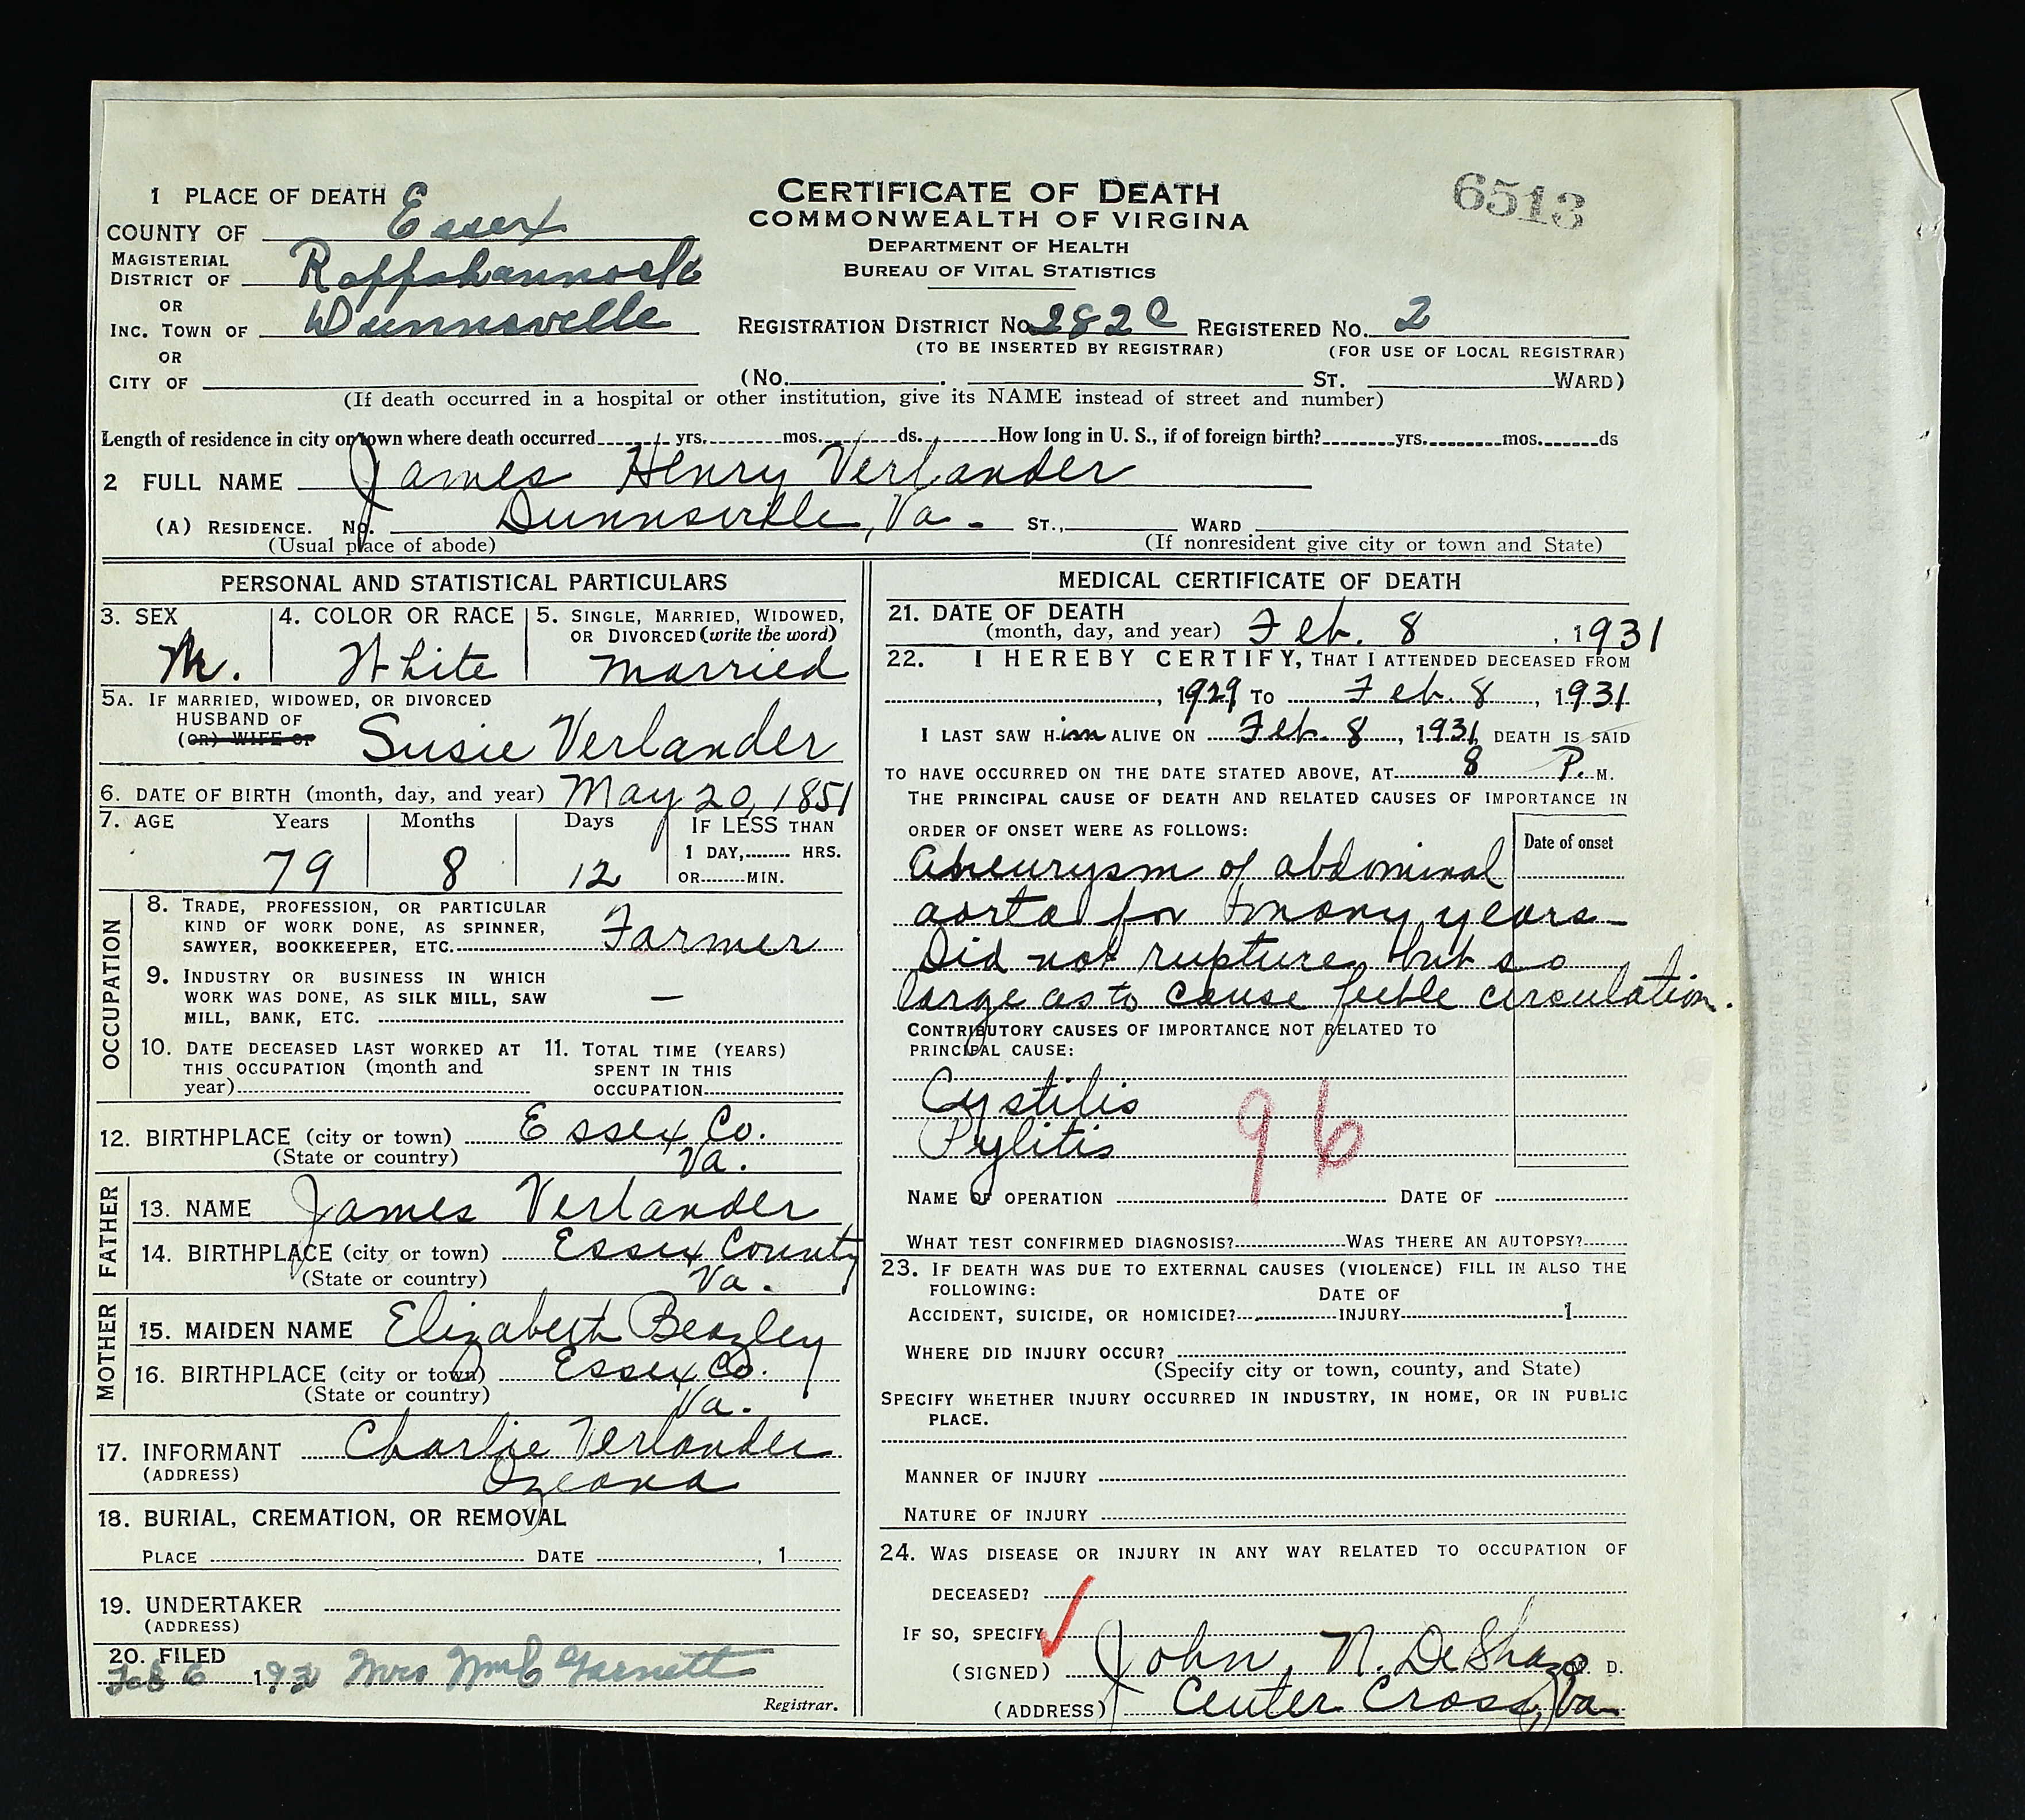 1 PLACE OF DEATH
COUNTY OF Essex
MAGISTERIAL DISTRICT OF Rappahannock
OR
INC. TOWN OF Dunnsville
OR
CITY OF
CERTIFICATE OF DEATH
COMMONWEALTH OF VIRGINIA
DEPARTMENT OF HEALTH
BUREAU OF VITAL STATISTICS
6513
REGISTRATION DISTRICT No. 282C REGISTERED No. 2
(TO BE INSERTED BY REGISTRAR) (FOR USE OF LOCAL REGISTRAR)
(No. ST. WARD)
(If death occurred in a hospital or other institution, give its NAME instead of street and number)
Length of residence in city or town where death occurred yrs. mos. ds. How long in U. S., if of foreign birth? yrs. mos. ds
2 FULL NAME James Henry Verlander
(A) RESIDENCE. No. Dunnsville, Va. ST., WARD
(Usual place of abode) (If nonresident give city or town and State)
PERSONAL AND STATISTICAL PARTICULARS
3. SEX M.
4. COLOR OR RACE White
5. SINGLE, MARRIED, WIDOWED, OR DIVORCED (write the word) married
5A. IF MARRIED, WIDOWED, OR DIVORCED
HUSBAND OF
(OR) WIFE OF Susie Verlander
6. DATE OF BIRTH (month, day, and year) May 20, 1851
7. AGE Years Months Days IF LESS THAN
79 8 12 1 DAY, HRS.
OR MIN.
OCCUPATION
8. TRADE, PROFESSION, OR PARTICULAR
KIND OF WORK DONE, AS SPINNER,
SAWYER, BOOKKEEPER, ETC. Farmer
9. INDUSTRY OR BUSINESS IN WHICH
WORK WAS DONE, AS SILK MILL, SAW
MILL, BANK, ETC. —
10. DATE DECEASED LAST WORKED AT
THIS OCCUPATION (month and
year)
11. TOTAL TIME (YEARS)
SPENT IN THIS
OCCUPATION
12. BIRTHPLACE (city or town) Essex Co.
(State or country) Va.
FATHER
13. NAME James Verlander
14. BIRTHPLACE (city or town) Essex County
(State or country) Va.
MOTHER
15. MAIDEN NAME Elizabeth Beazley
16. BIRTHPLACE (city or town) Essex Co.
(State or country) Va.
17. INFORMANT Charlie Verlander
(ADDRESS) Ozeana
18. BURIAL, CREMATION, OR REMOVAL
PLACE DATE , 1
19. UNDERTAKER
(ADDRESS)
20. FILED
Feb 6 193 Mrs Wm C Garnett
Registrar.
MEDICAL CERTIFICATE OF DEATH
21. DATE OF DEATH
(month, day, and year) Feb. 8 , 1931
22. I HEREBY CERTIFY, THAT I ATTENDED DECEASED FROM
, 1929 TO Feb. 8, 1931
I LAST SAW Him ALIVE ON Feb. 8, 1931 DEATH IS SAID
TO HAVE OCCURRED ON THE DATE STATED ABOVE, AT 8 P. M.
THE PRINCIPAL CAUSE OF DEATH AND RELATED CAUSES OF IMPORTANCE IN
ORDER OF ONSET WERE AS FOLLOWS:
Date of onset
Aneurysm of abdominal
aorta for many years
Did not rupture, but so
large as to cause feeble circulation.
CONTRIBUTORY CAUSES OF IMPORTANCE NOT RELATED TO
PRINCIPAL CAUSE:
Cystitis
Pylitis
96
NAME OF OPERATION DATE OF
WHAT TEST CONFIRMED DIAGNOSIS? WAS THERE AN AUTOPSY?
23. IF DEATH WAS DUE TO EXTERNAL CAUSES (VIOLENCE) FILL IN ALSO THE
FOLLOWING:
ACCIDENT, SUICIDE, OR HOMICIDE? DATE OF INJURY 1
WHERE DID INJURY OCCUR?
(Specify city or town, county, and State)
SPECIFY WHETHER INJURY OCCURRED IN INDUSTRY, IN HOME, OR IN PUBLIC
PLACE.
MANNER OF INJURY
NATURE OF INJURY
24. WAS DISEASE OR INJURY IN ANY WAY RELATED TO OCCUPATION OF
DECEASED?
IF SO, SPECIFY
(SIGNED) John N. DeShazo M. D.
(ADDRESS) Center Cross, Va